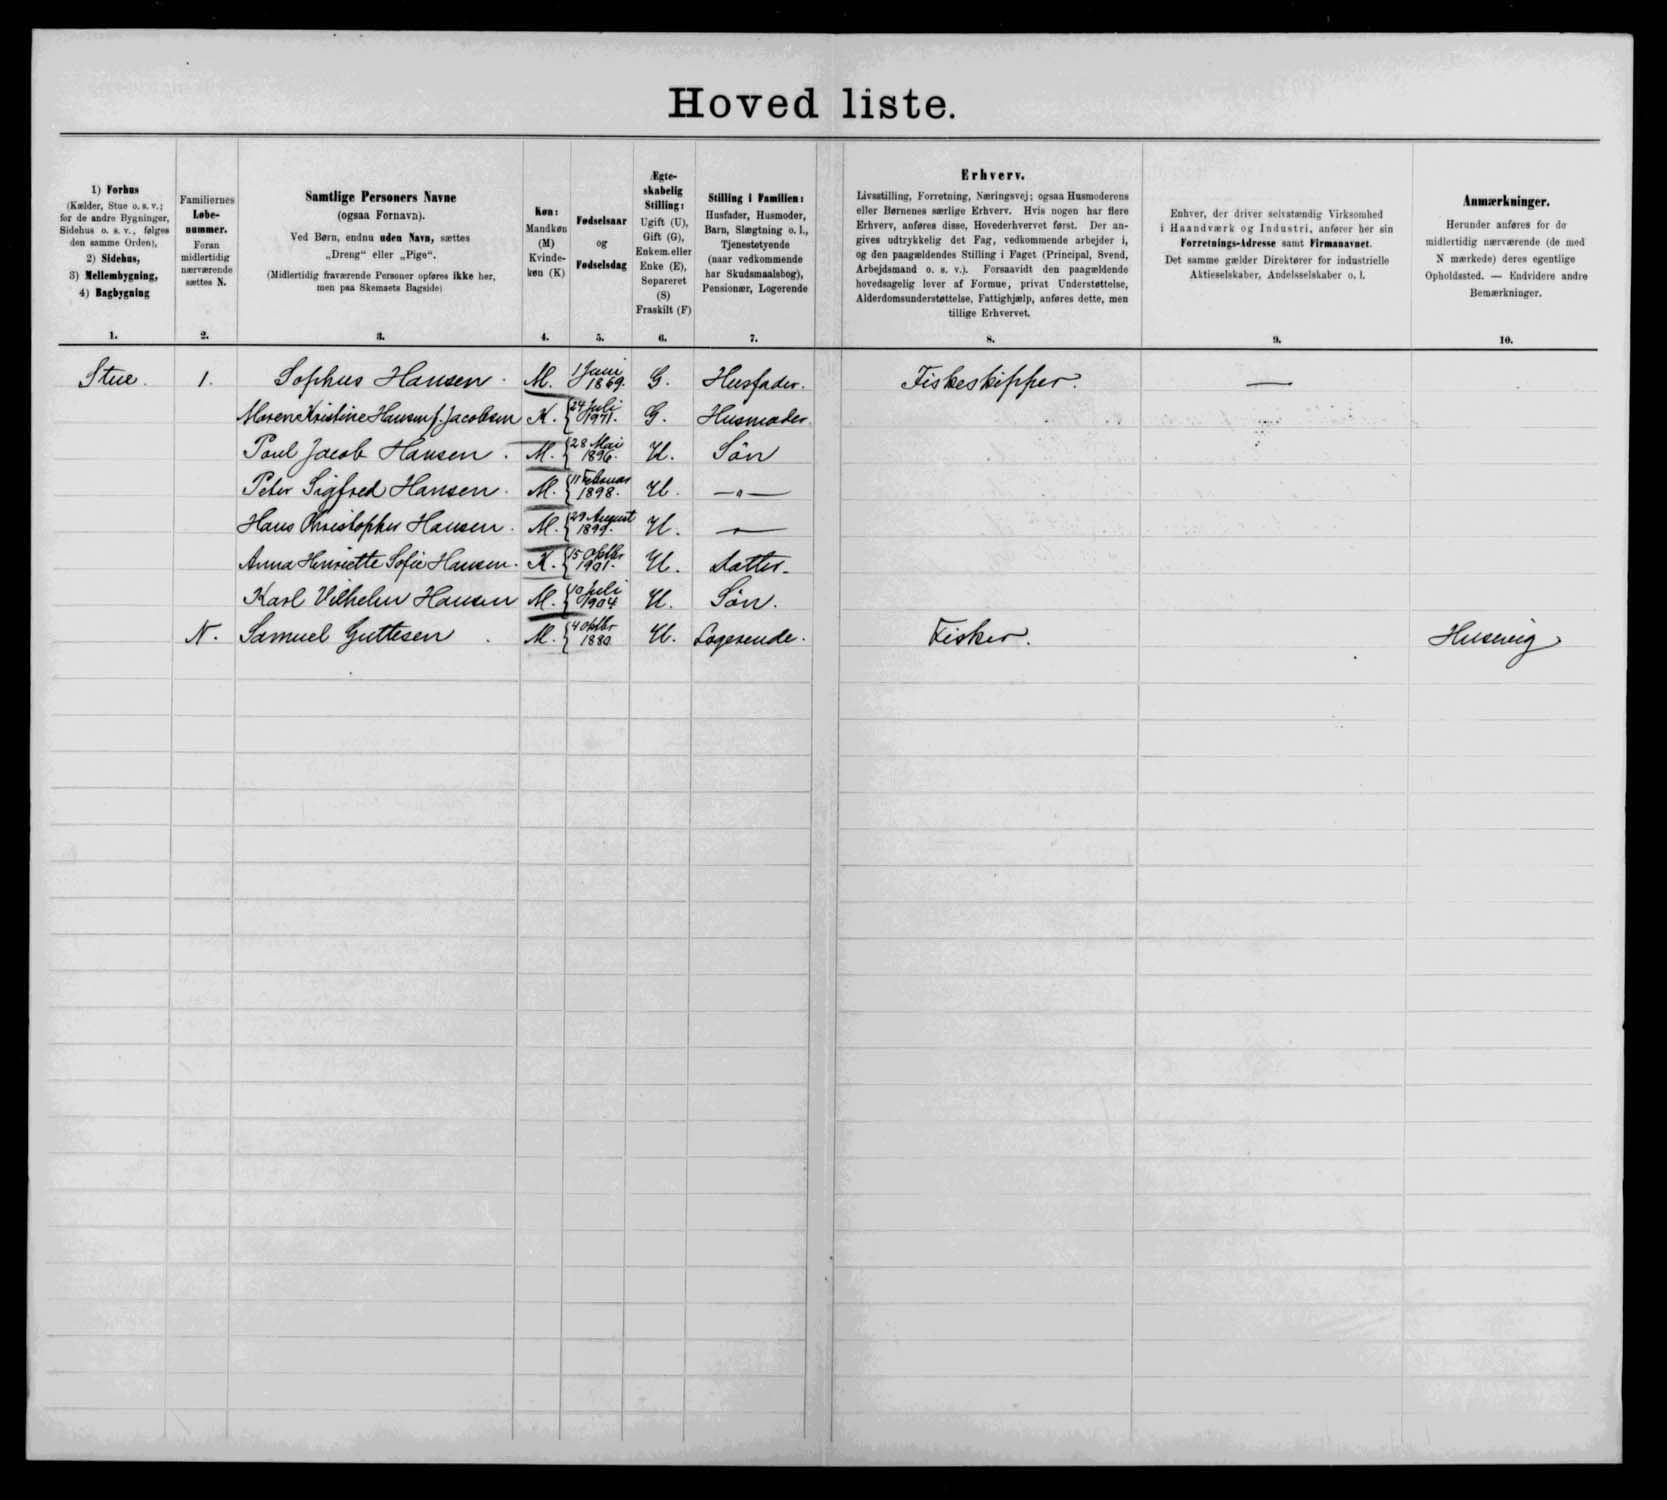 Hoved liste.
1) Forhus
(Kælder, Stue o. s. v.;
for de andre Bygninger,
Sidehus o. s. v., følges
den samme Orden),
2) Sidehus,
3) Mellembygning,
4) Bagbygning
1.
Familiernes
Løbe-
nummer.
Foran
midlertidig
nærværende
sættes N.
2.
Samtlige Personers Navne
(ogsaa Fornavn).
Ved Børn, endnu uden Navn, sættes
„Dreng“ eller „Pige“.
(Midlertidig fraværende Personer opføres ikke her,
men paa Skemaets Bagside)
3.
Køn:
Mandkøn
(M)
Kvinde-
køn (K)
4.
Fødselsaar
og
Fødselsdag
5.
Ægte-
skabelig
Stilling:
Ugift (U),
Gift (G),
Enkem. eller
Enke (E),
Separeret
(S)
Fraskilt (F)
6.
Stilling i Familien:
Husfader, Husmoder,
Barn, Slægtning o. l.,
Tjenestetyende
(naar vedkommende
har Skudsmaalsbog),
Pensionær, Logerende
7.
Erhverv.
Livsstilling, Forretning, Næringsvej; ogsaa Husmoderens
eller Børnenes særlige Erhverv. Hvis nogen har flere
Erhverv, anføres disse, Hovederhvervet først. Der an-
gives udtrykkelig det Fag, vedkommende arbejder i,
og den paagældendes Stilling i Faget (Principal, Svend,
Arbejdsmand o. s. v.). Forsaavidt den paagældende
hovedsagelig lever af Formue, privat Understøttelse,
Alderdomsunderstøttelse, Fattighjælp, anføres dette, men
tillige Erhvervet.
8.
Enhver, der driver selvstændig Virksomhed
i Haandværk og Industri, anfører her sin
Forretnings-Adresse samt Firmanavnet.
Det samme gælder Direktører for industrielle
Aktieselskaber, Andelsselskaber o. l.
9.
Anmærkninger.
Herunder anføres for de
midlertidig nærværende (de med
N mærkede) deres egentlige
Opholdssted. — Endvidere andre
Bemærkninger.
10.
Stue. 1. Sophus Hansen. M. 1 Juni 1869. G. Husfader. Fiskeskipper. —
Maren Kristine Hansen f. Jacobsen K. 24 Juli 1971. G. Husmoder.
Poul Jacob Hansen. M. 28 Mai 1896. U. Søn
Peter Sigfred Hansen. M. 11 Februar 1898. U. —„—
Hans Christopher Hansen. M. 29 August 1899. U. —„—
Anna Henriette Sofie Hansen. K. 15 Oktbr 1901. U. Datter.
Karl Vilhelm Hansen M. 10 Juli 1904 U. Søn.
N. Samuel Guttesen M. 4 Oktbr 1880 U. Logerende. Fisker. Husevig